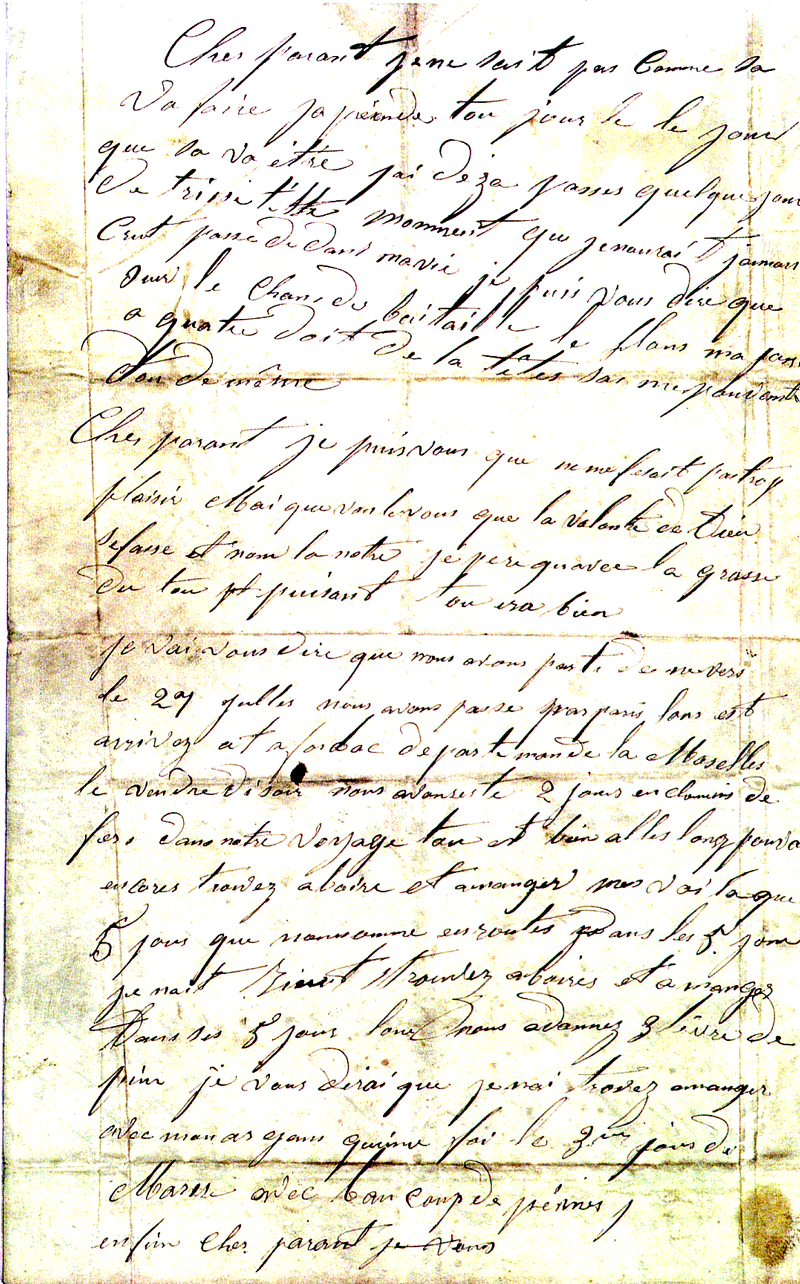 Cher parant je ne sait pas comme sa
va faire japeinde tou jour le le jour
que sa va être jai déza passes quelque jour
de triste moment que jenaurait jamais
Crut passe dedans mavie je puis vous dire que
sur le chans de baitaille le plons ma pas
a quatre doit de la tètes sai me pouvant
dou de même
Cher parant je puis vous que ne me fesait pas trop
plaisir Mai que voulevous que la volonté de Dieu
se fasse et nom la notre jéspere quavec la grasse
du tou puisant tou ira bien
je vai vous dire que nous avons parti de nevers
le 27 julles nous avons passe par paris lons est
arrivez at a forbac departemande la Moselles
le vendredi soir nous avonreste 2 jours en chemins de
fers dans notre voyage tou et bien alles lonz pouva
encores trouvez aboire et amanger mes voila que
5 jours que noussomme en routes dans les 5 jour
je nait rient trouvez aboires et a mangez
Dans ses 5 jours lonz nous adonnez 3 livre de
pin je vous dirai que jenai trouvez amanger
avec mon argens quinne foi le 3me jour de
Mars avec baucoup de peines j
enfin cher parant je vous